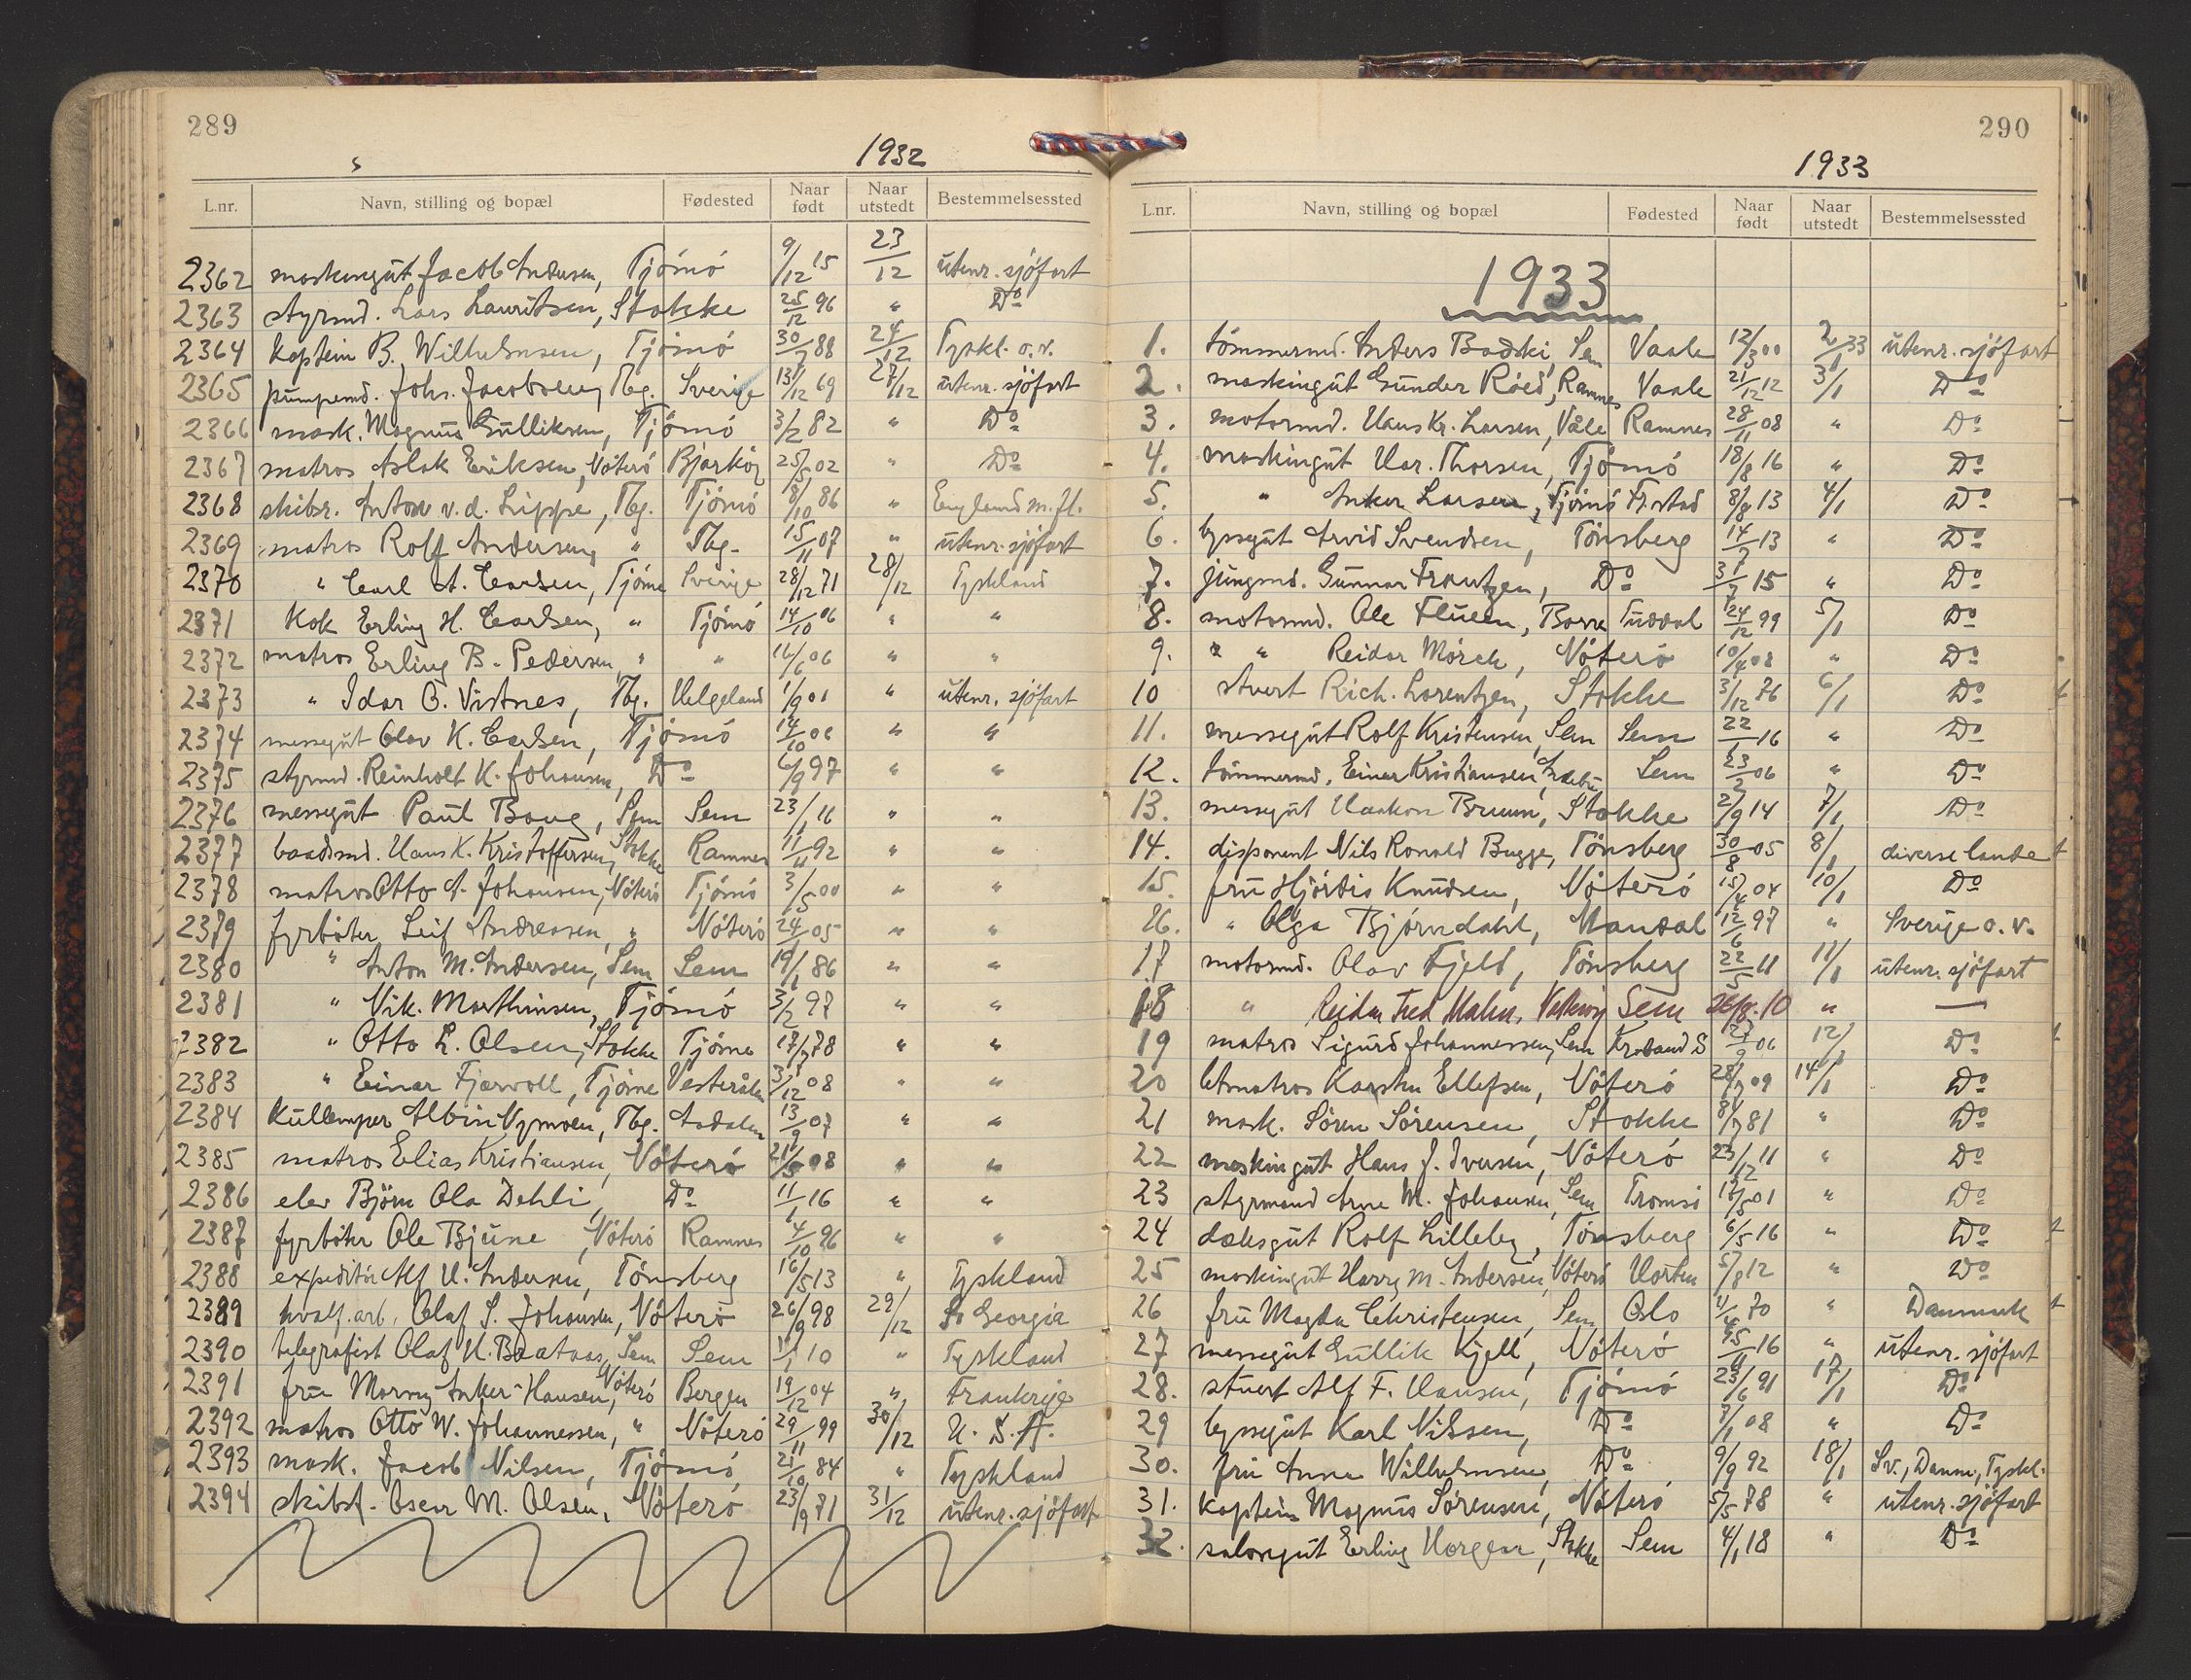 289
1932
L.nr. Navn, stilling og bopæl Fødested Naar født Naar utstedt Bestemmelsessted
2362 maskingut Jacob Andersen, Tjömö 9/12 15 23/12 utenr. sjöfart
2363 styrmd. Lars Lauritsen, Stokke 25/12 96 " Do
2364 Kaptein B. Wilhelmsen, Tjömö 30/7 88 24/12 Tyskl. o.v.
2365 pumpemd. Johs. Jacobsen, Tbg. Sverige 13/12 69 27/12 utenr. sjöfart
2366 mask. Magnus Gulliksen, Tjömö 3/2 82 " Do
2367 matros Aslak Eriksen, Nöterö Bjarköy 25/5 02 " Do
2368 skibsr. Anton v.d. Lippe, Tbg. Tjömö 18/10 86 " England m.fl.
2369 matros Rolf Andersen, " Tbg. 15/11 07 " utenr. sjöfart
2370 " Carl A. Carlsen, Tjöme Sverige 28/12 71 28/12 Tyskland
2371 Kok Erling H. Carlsen, " Tjömö 14/10 06 " "
2372 matros Erling B. Pedersen, " " 16/6 06 " "
2373 " Idar O. Vistnes, Tbg. Helgeland 1/9 01 " utenr. sjöfart
2374 messegut Olav K. Carlsen, Tjömö 14/10 " "
2375 styrmd. Reinholt K. Johansen, Do 6/9 97 " "
2376 messegut Paul Baug, Sem Sem 23/1 16 " "
2377 baadsmd. Hans K. Kristoffersen, Stokke Ramnes 11/11 92 " "
2378 matros Otto A. Johansen, Nöterö Tjömö 3/5 00 " "
2379 fyrböter Leif Andreassen, " Nöterö 24/1 05 " "
2380 " Anton M. Andersen, Sem Sem 19/1 86 " "
2381 " Nik. Marthinsen, Tjömö 3/2 97 " "
2382 " Otto L. Olsen, Stokke Tjöme 17/7 78 " "
2383 " Einar Fjærvoll, Tjöme Vesterålen 3/12 08 " "
2384 Kullemper Albin Nymoen, Tbg. Aadalen 13/9 07 " "
2385 matros Elias Kristiansen, Nöterö 21/5 08 " "
2386 elev Björn Ola Dehli, Do 11/1 16 " "
2387 fyrböter Ole Bjune, Nöterö Ramnes 4/10 96 " "
2388 expeditör Alf H. Andersen, Tönsberg 16/5 13 " Tyskland
2389 hvalf.arb. Olaf S. Johansen, Nöterö 26/9 98 29/12 S. Georgia
2390 telegrafist Olaf H. Baataas, Sem Sem 1/1 10 " Tyskland
2391 fru Marny Anker-Hansen, Nöterö Bergen 19/12 04 " Frankrige
2392 matros Otto W. Johannessen, " Nöterö 29/11 99 30/12 U.S.A.
2393 mask. Jacob Nilsen, Tjömö 21/10 84 " Tyskland
2394 skibsf. Oscar M. Olsen, Nöterö 23/9 71 31/12 utenr. sjöfart
290
1933
L.nr. Navn, stilling og bopæl Fødested Naar født Naar utstedt Bestemmelsessted
1933
1. tömmermd. Anders Badski, Sem Vaale 12/3 00 2/1 33 utenr. sjöfart
2. maskingut Gunder Röed, Ramnes Vaale 21/12 12 3/1 Do
3. motormd. Hans Kr. Larsen, Våle Ramnes 28/11 08 " Do
4. maskingut Har. Thorsen, Tjömö 18/8 16 " Do
5. " Anker Larsen, Tjömö Fr.stad 8/8 13 4/1 Do
6. byssegut Arvid Svendsen, Tönsberg 14/7 13 " Do
7. jungmd. Gunnar Frantzen, Do 3/7 15 " Do
8. motormd. Ole Flueen, Borre Tuddal 24/12 99 5/1 Do
9. " " Reidar Mörck, Nöterö 10/4 08 " Do
10 stuert Rich. Lorentzen, Stokke 3/12 76 6/1 Do
11. messegut Rolf Kristensen, Sem Sem 22/1 16 " Do
12. tömmermd. Einar Kristiansen, Andebu Sem 23/2 06 " Do
13. messegut Haakon Bruun, Stokke 2/9 14 7/1 Do
14. disponent Nils Ronald Bugge, Tönsberg 30/8 05 8/1 diverse lande
15. fru Hjördis Knudsen, Nöterö 15/4 04 10/1 Do
16. " Olga Bjørndahl, Mandal 12/6 97 " Sverige o.v.
17 motormd. Olav Fjeld, Tönsberg 22/5 11 11/1 utenr. sjöfart
18 " Reidar Fred Malm, Sem 26/8.10 " —
19 matros Sigurd Johannessen, Sem Kr.sand S 27/9 06 12/1 Do
20 letmatros Karsten Ellefsen, Nöterö 28/7 09 14/1 Do
21 mask. Sören Sörensen, Stokke 8/7 81 " Do
22 maskingut Hans J. Iversen, Nöterö 23/12 11 " Do
23 styrmand Arne M. Johansen, Sem Tromsö 12/5 01 " Do
24 deksgut Rolf Lilleby, Tönsberg 6/5 16 " Do
25 maskingut Harry M. Andersen, Nöterö Horten 5/8 12 " Do
26 fru Magda Christensen, Sem Oslo 11/4 70 " Danmark
27 messegut Gullik Kjell, Nöterö 15/11 16 " utenr. sjöfart
28. stuert Alf F. Hansen, Tjömö 23/6 91 17/1 Do
29 byssegut Karl Nilssen, Do 7/1 08 " Do
30. fru Anna Wilhelmsen, Do 9/9 92 18/1 Sv., Danm, Tyskl.
31. Kaptein Magnus Sörensen, Nöterö 5/5 78 " utenr. sjöfart
32. salongut Erling Horgen, Stokke Sem 4/1 18 " Do